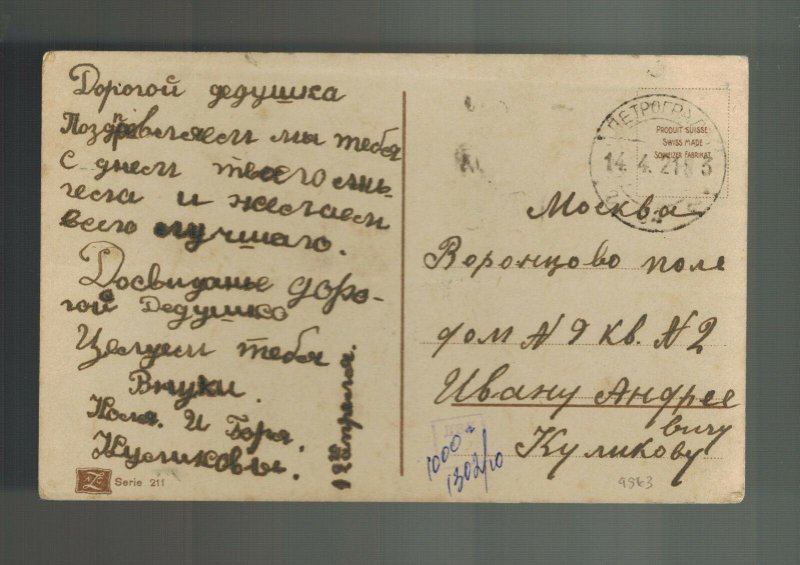 Дорогой дедушка
Поздравляем мы тебя
с днем твоего анъ-
гела и желаем
всего лучшаго.
Досвиданье доро-
гой Дедушко
Целуем тебя
Внуки.
Коля. И Боря.
Куликовы.
12го апреля.
Serie 211
ПЕТРОГРАД
14.4.21
PRODUIT SUISSE
SWISS MADE
SCHWEIZER FABRIKAT
Москва
Воронцово поле
дом N 9 кв. N 2
Ивану Андрее
вичу
Куликову
1000
1302/10
9863